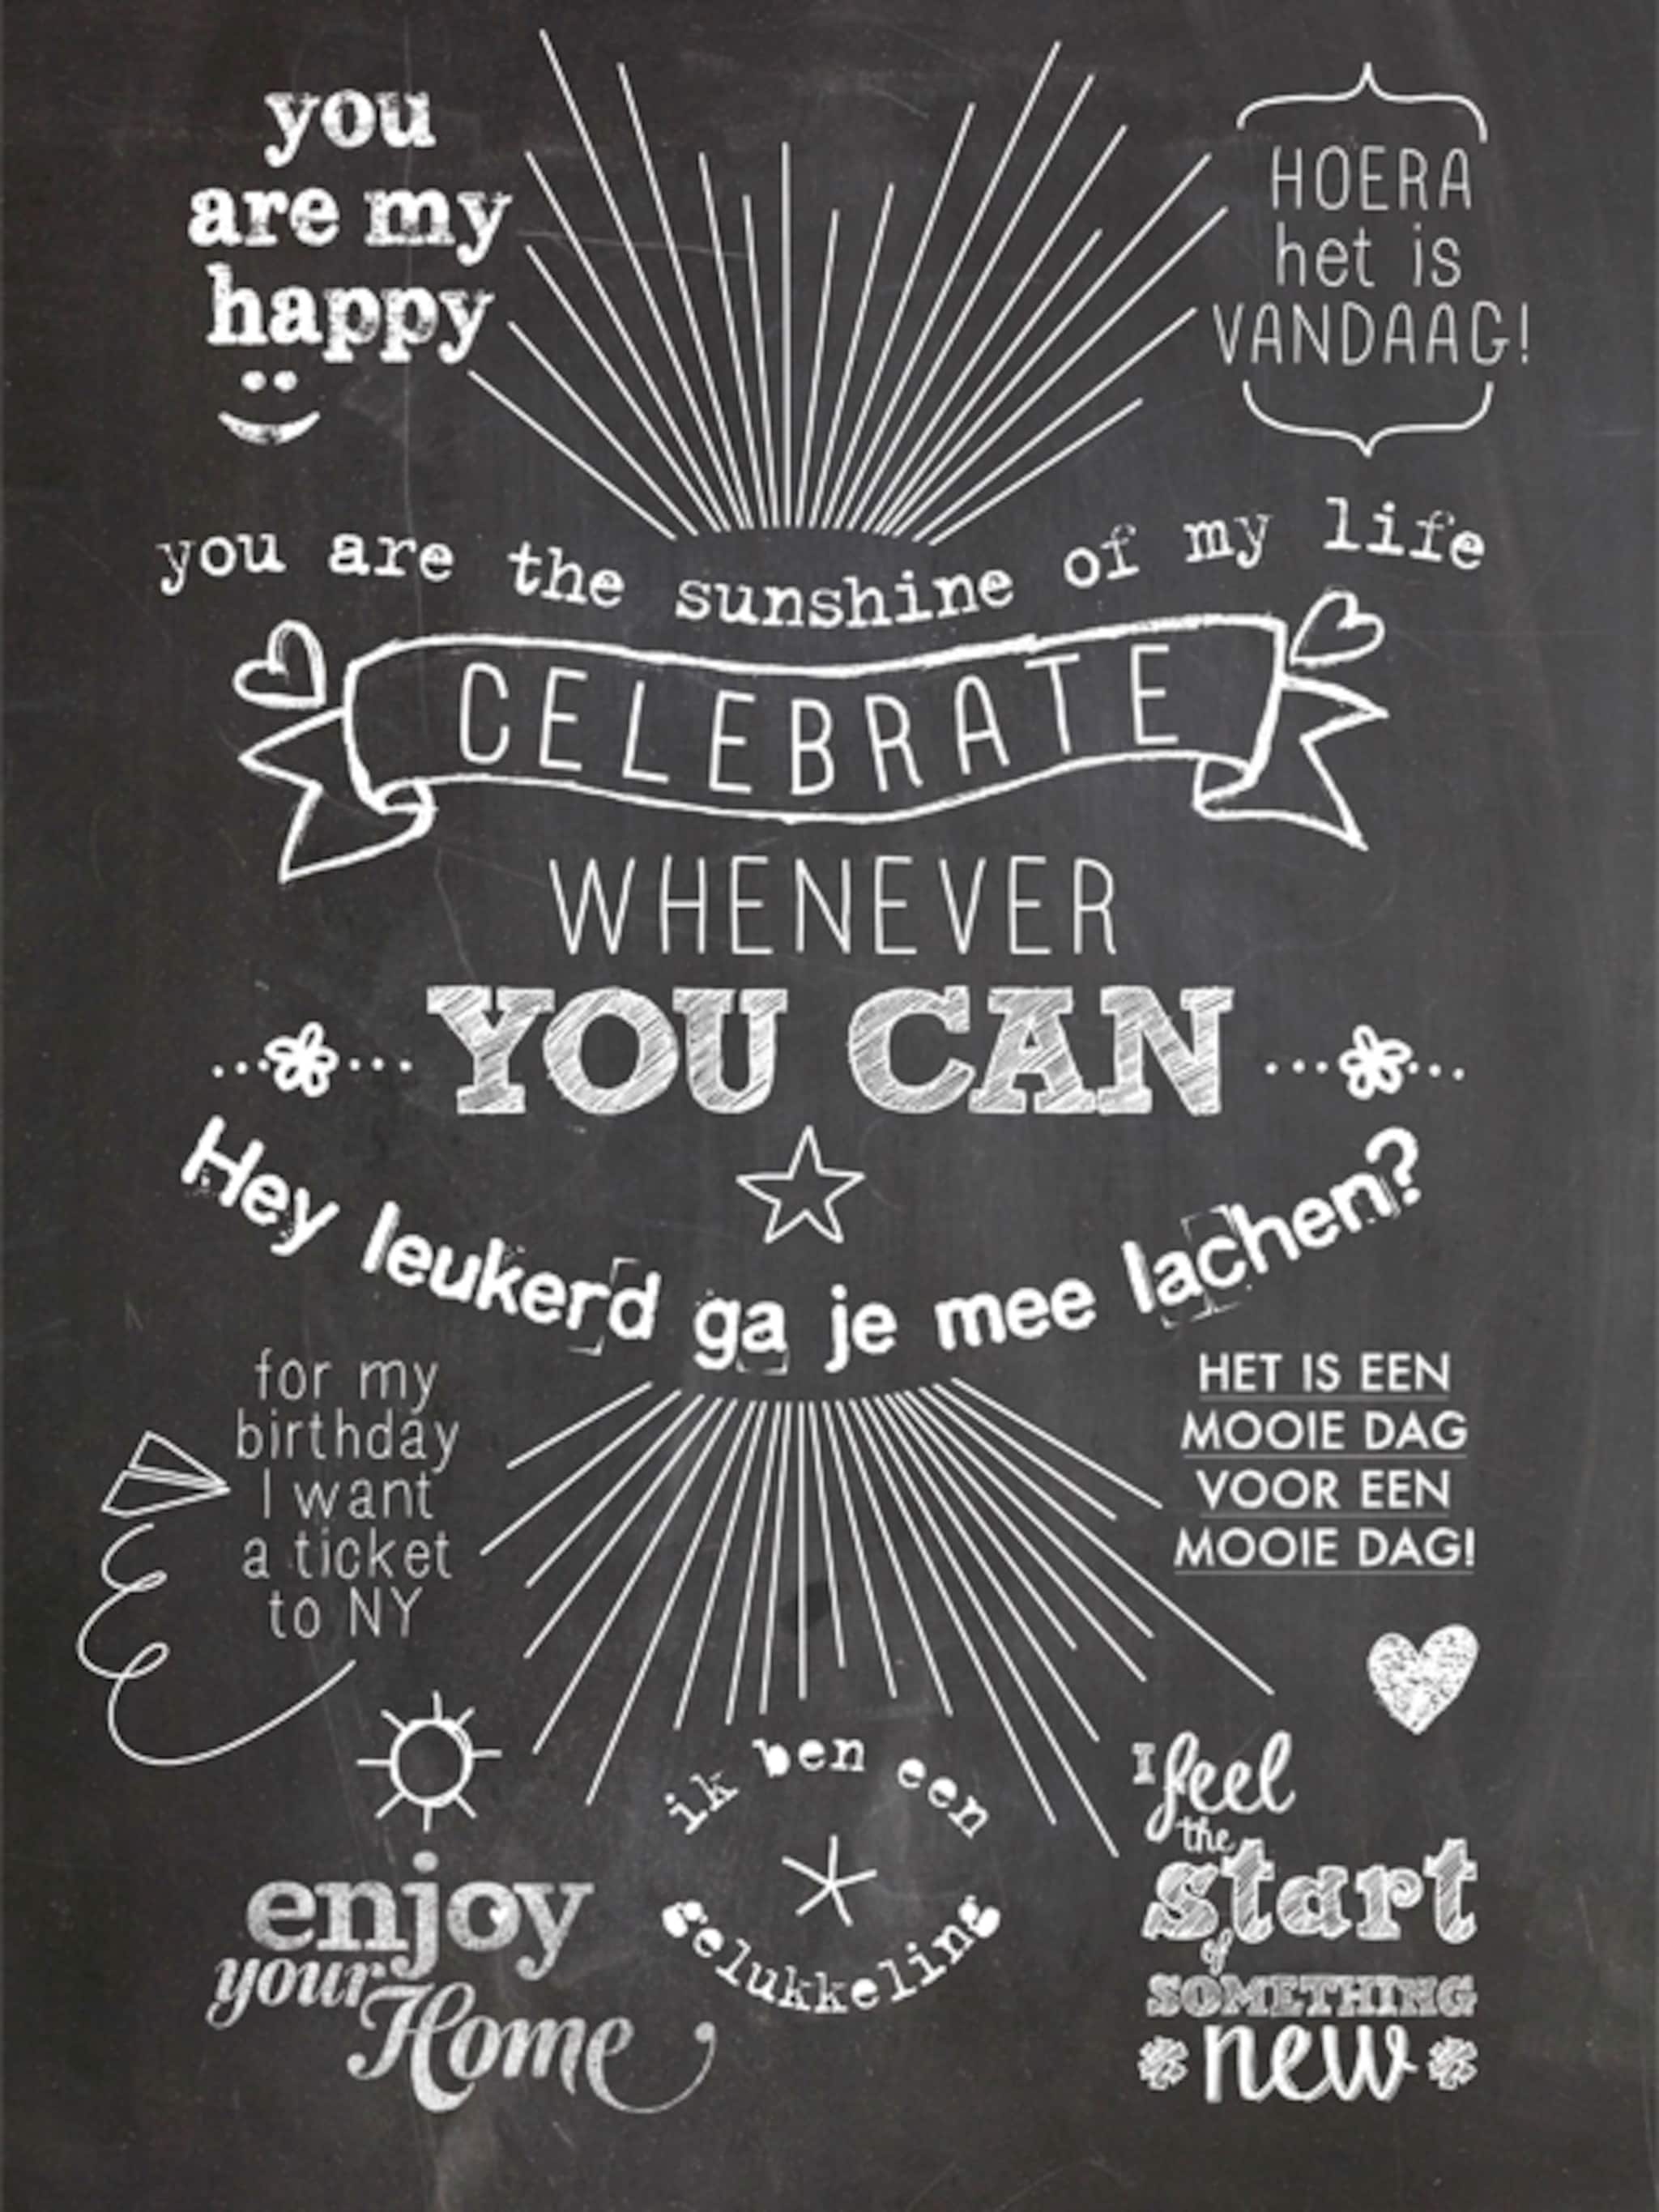 you
are my
happy
HOERA
het is
VANDAAG!
you are the sunshine of my life
CELEBRATE
WHENEVER
YOU CAN
Hey leukerd ga je mee lachen?
for my
birthday
I want
a ticket
to NY
HET IS EEN
MOOIE DAG
VOOR EEN
MOOIE DAG!
enjoy
your
Home
ik ben een
gelukkeling
I feel
the
start
of
SOMETHING
new